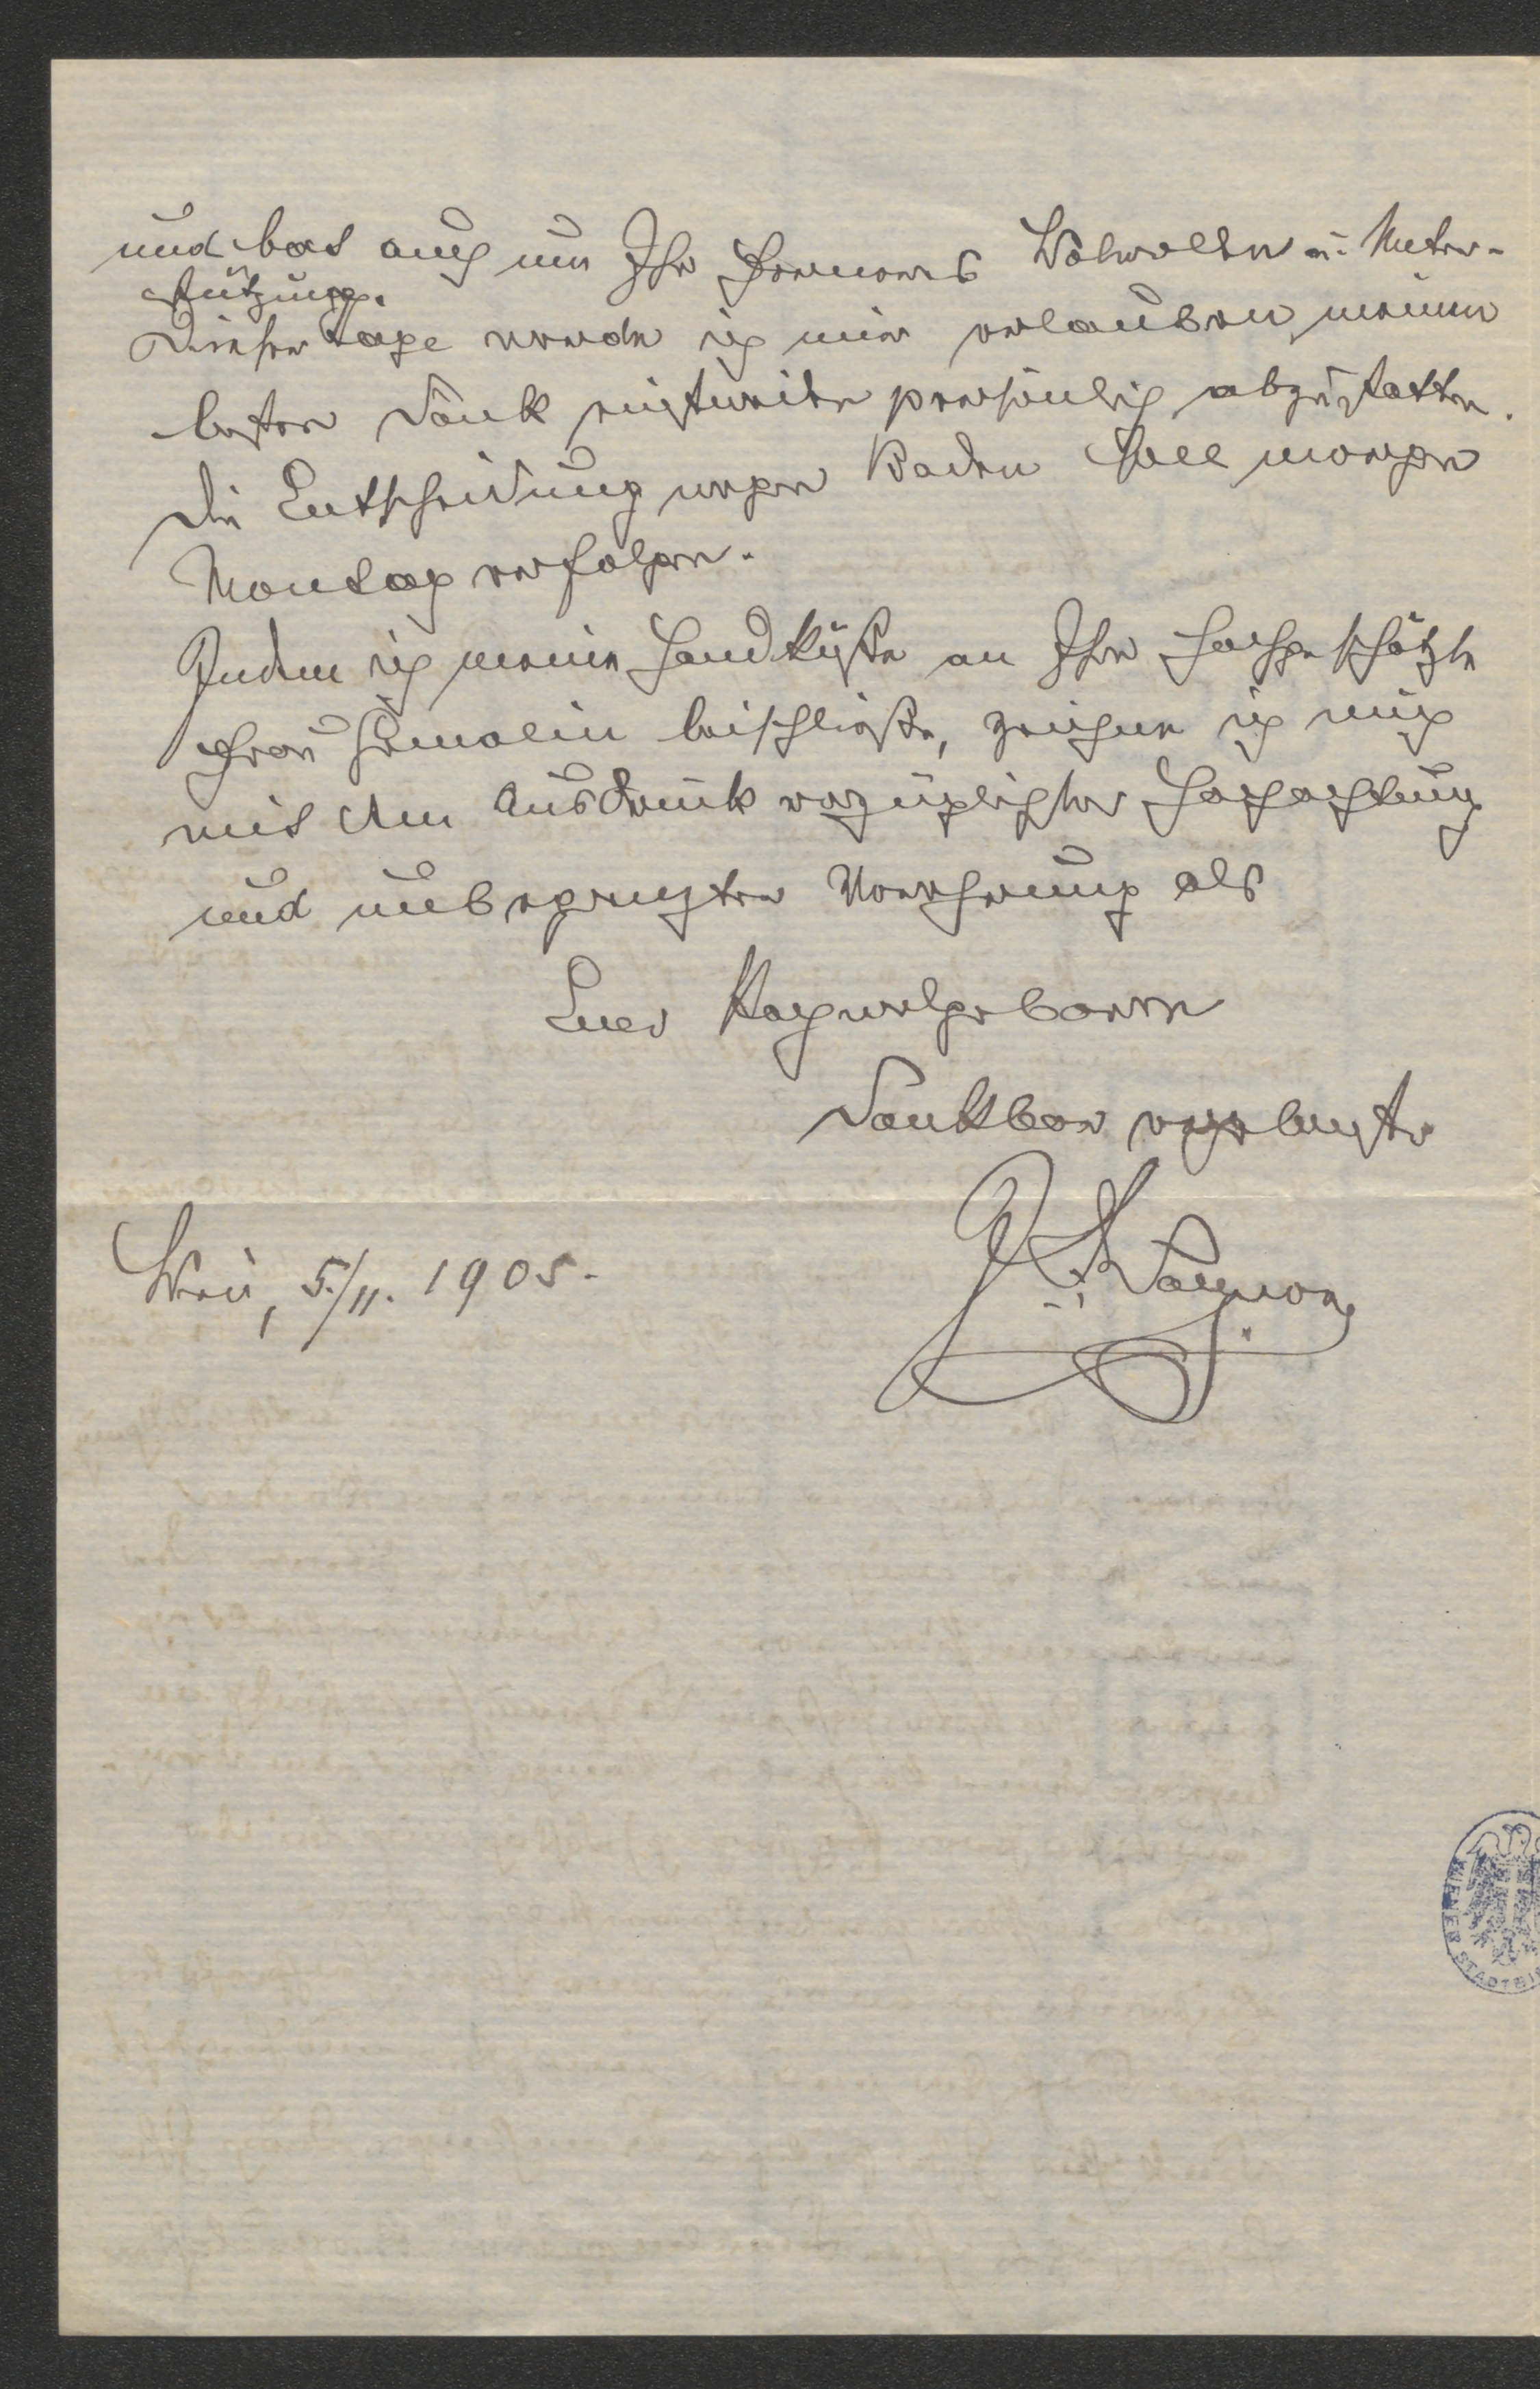 und bat auch um Ihr ferneres Wolwollen u. Unter-
stützung.
Dieser Tage werde ich mir erlauben meinen
besten Dank einstweilen persönlich abzustatten.
Die Entscheidung wegen Baden soll morgen
Montag erfolgen.
Indem ich meine Handküße an Ihre hochgeschätzte
Frau Gemalin beischließe, zeichne ich mich
mit dem Ausdruck vorzüglichster Hochachtung
und unbegrenzter Verehrung als
Euer Hochwolgeboren
Dankbar ergebenster
Wagner
Wien, 5./11. 1905.
WIENER STADTBI